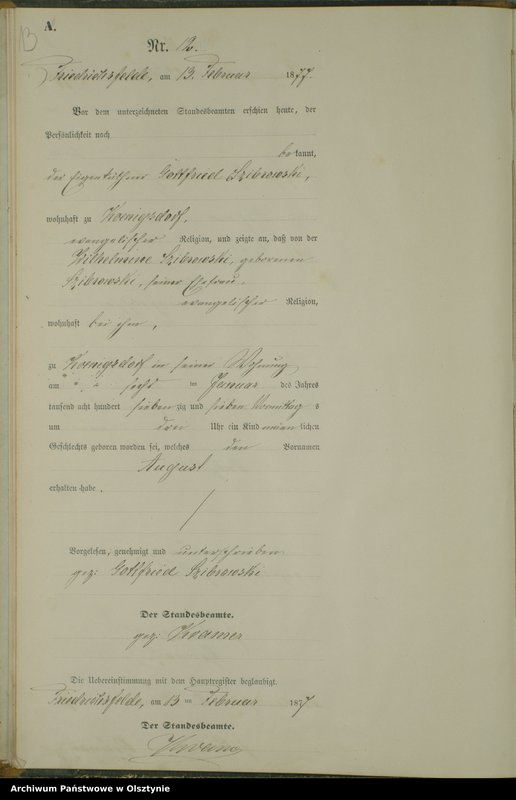 13
A.
Nr. 12.
Friedrichsfelde, am 13. Februar 1877.
Vor dem unterzeichneten Standesbeamten erschien heute, der
Persönlichkeit nach
bekannt,
der Eigenthümer Gottfried Szibrowski,
wohnhaft zu Koenigsdorf,
evangelischer Religion, und zeigte an, daß von der
Wilhelmine Szibrowski, geborenen
Szibrowski, seiner Ehefrau,
evangelischer Religion,
wohnhaft bei ihm,
zu Koenigsdorf in seiner Wohnung
am sechs ten Januar des Jahres
tausend acht hundert siebenzig und sieben Vormittags
um drei Uhr ein Kind männlichen
Geschlechts geboren worden sei, welches den Vornamen
August
erhalten habe.
Vorgelesen, genehmigt und unterschrieben
gez: Gottfried Szibrowski
Der Standesbeamte.
gez:
Die Uebereinstimmung mit dem Hauptregister beglaubigt.
Friedrichsfelde, am 13 ten Februar 1877
Der Standesbeamte.
Archiwum Państwowe w Olsztynie